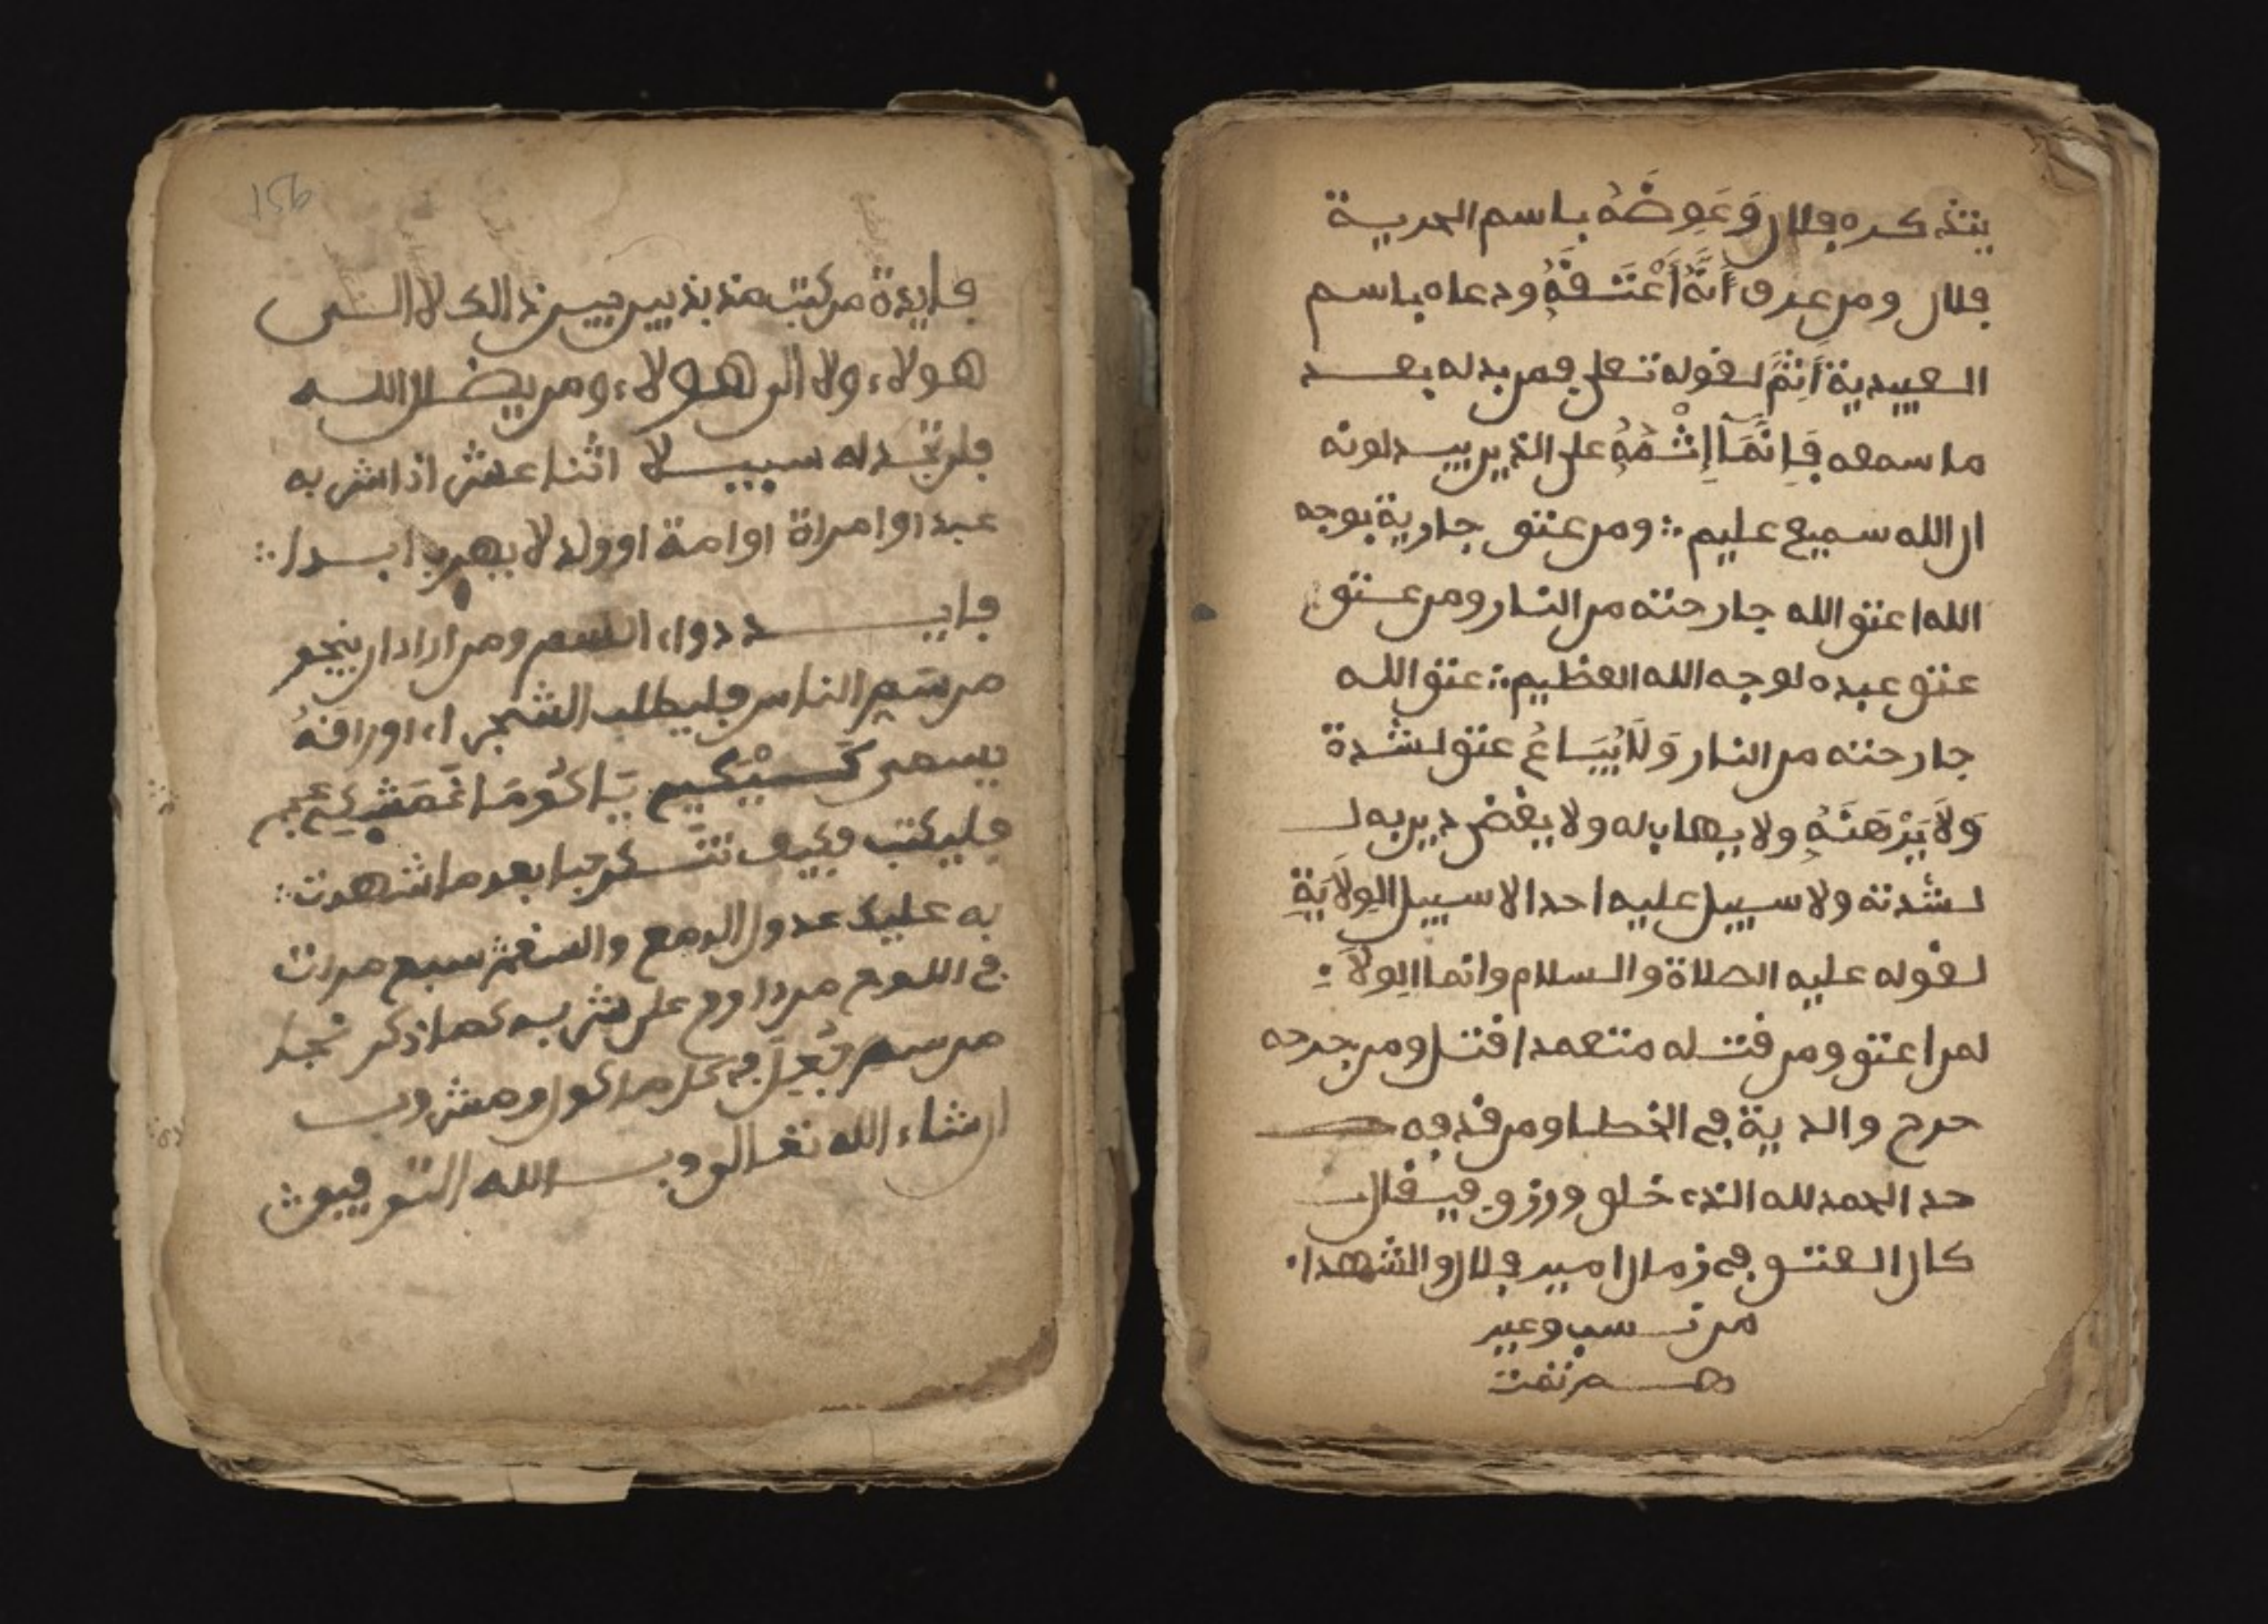 يتذكره فلان وَعَوِضَهُ باسم الحرية
فلان ومن عرف أَنَّهُ أَعْتَقَهُ ودعاه باسم
العبيدية أَثِمَ لقوله تعلى فمن بدله بعد
ما سمعه فَإِنَّمَآ إِثْمُهُ على الذين يبدلونه
ان الله سميع عليم ؞ ومن عتق جارية بوجه
الله اعتق الله جارحته من النار ومن عتق
عتق عبده لوجه الله العظيم ؞ عتق الله
جارحته من النار وَلَا يُبَاعُ عتق لشدة
وَلَا يَرْهَنَهُ ولا يهاب له ولا يفض دين به لـ
لشدته ولا سبيل عليه احدا الا سبيل الوِلَايَةِ
لقوله عليه الصلاة والسلام وانما الوِلَاءِ
لمن اعتق ومن قتله متعمدا قتل ومن جرحه
جرح والدية في الخطا ومن قذفه
حد الحمد لله الذي خلق ورزق فيقال
كان العتق في زمان امير فلان والشهداء
من نسب وغير
هم تمت
156
فايدة من كتب مذبذبين بين ذالك لا الى
هولاء ولا الى هولاء ومن يضلل الله
فلن تجد له سبيلا اثنا عشر اذا شربه
عبد او امراة او امة او ولد لا يهرب ابدا ؞
فايـــد دواء السم ومن اراد ان ينجو
من سَم الناس فليطلب الشجر اء اوراقهُ
يسمى
فليكتب فكيف تنكر حبا بعد ما شهدت ؞
به عليك عدول الدمع والسقم سبع مرات
في اللوح من داوم على شربه كما ذكر نجا
من سم فُعِلَ في كل ماكول ومشروب
ان شاء الله تعالى وبـالله التوفيق